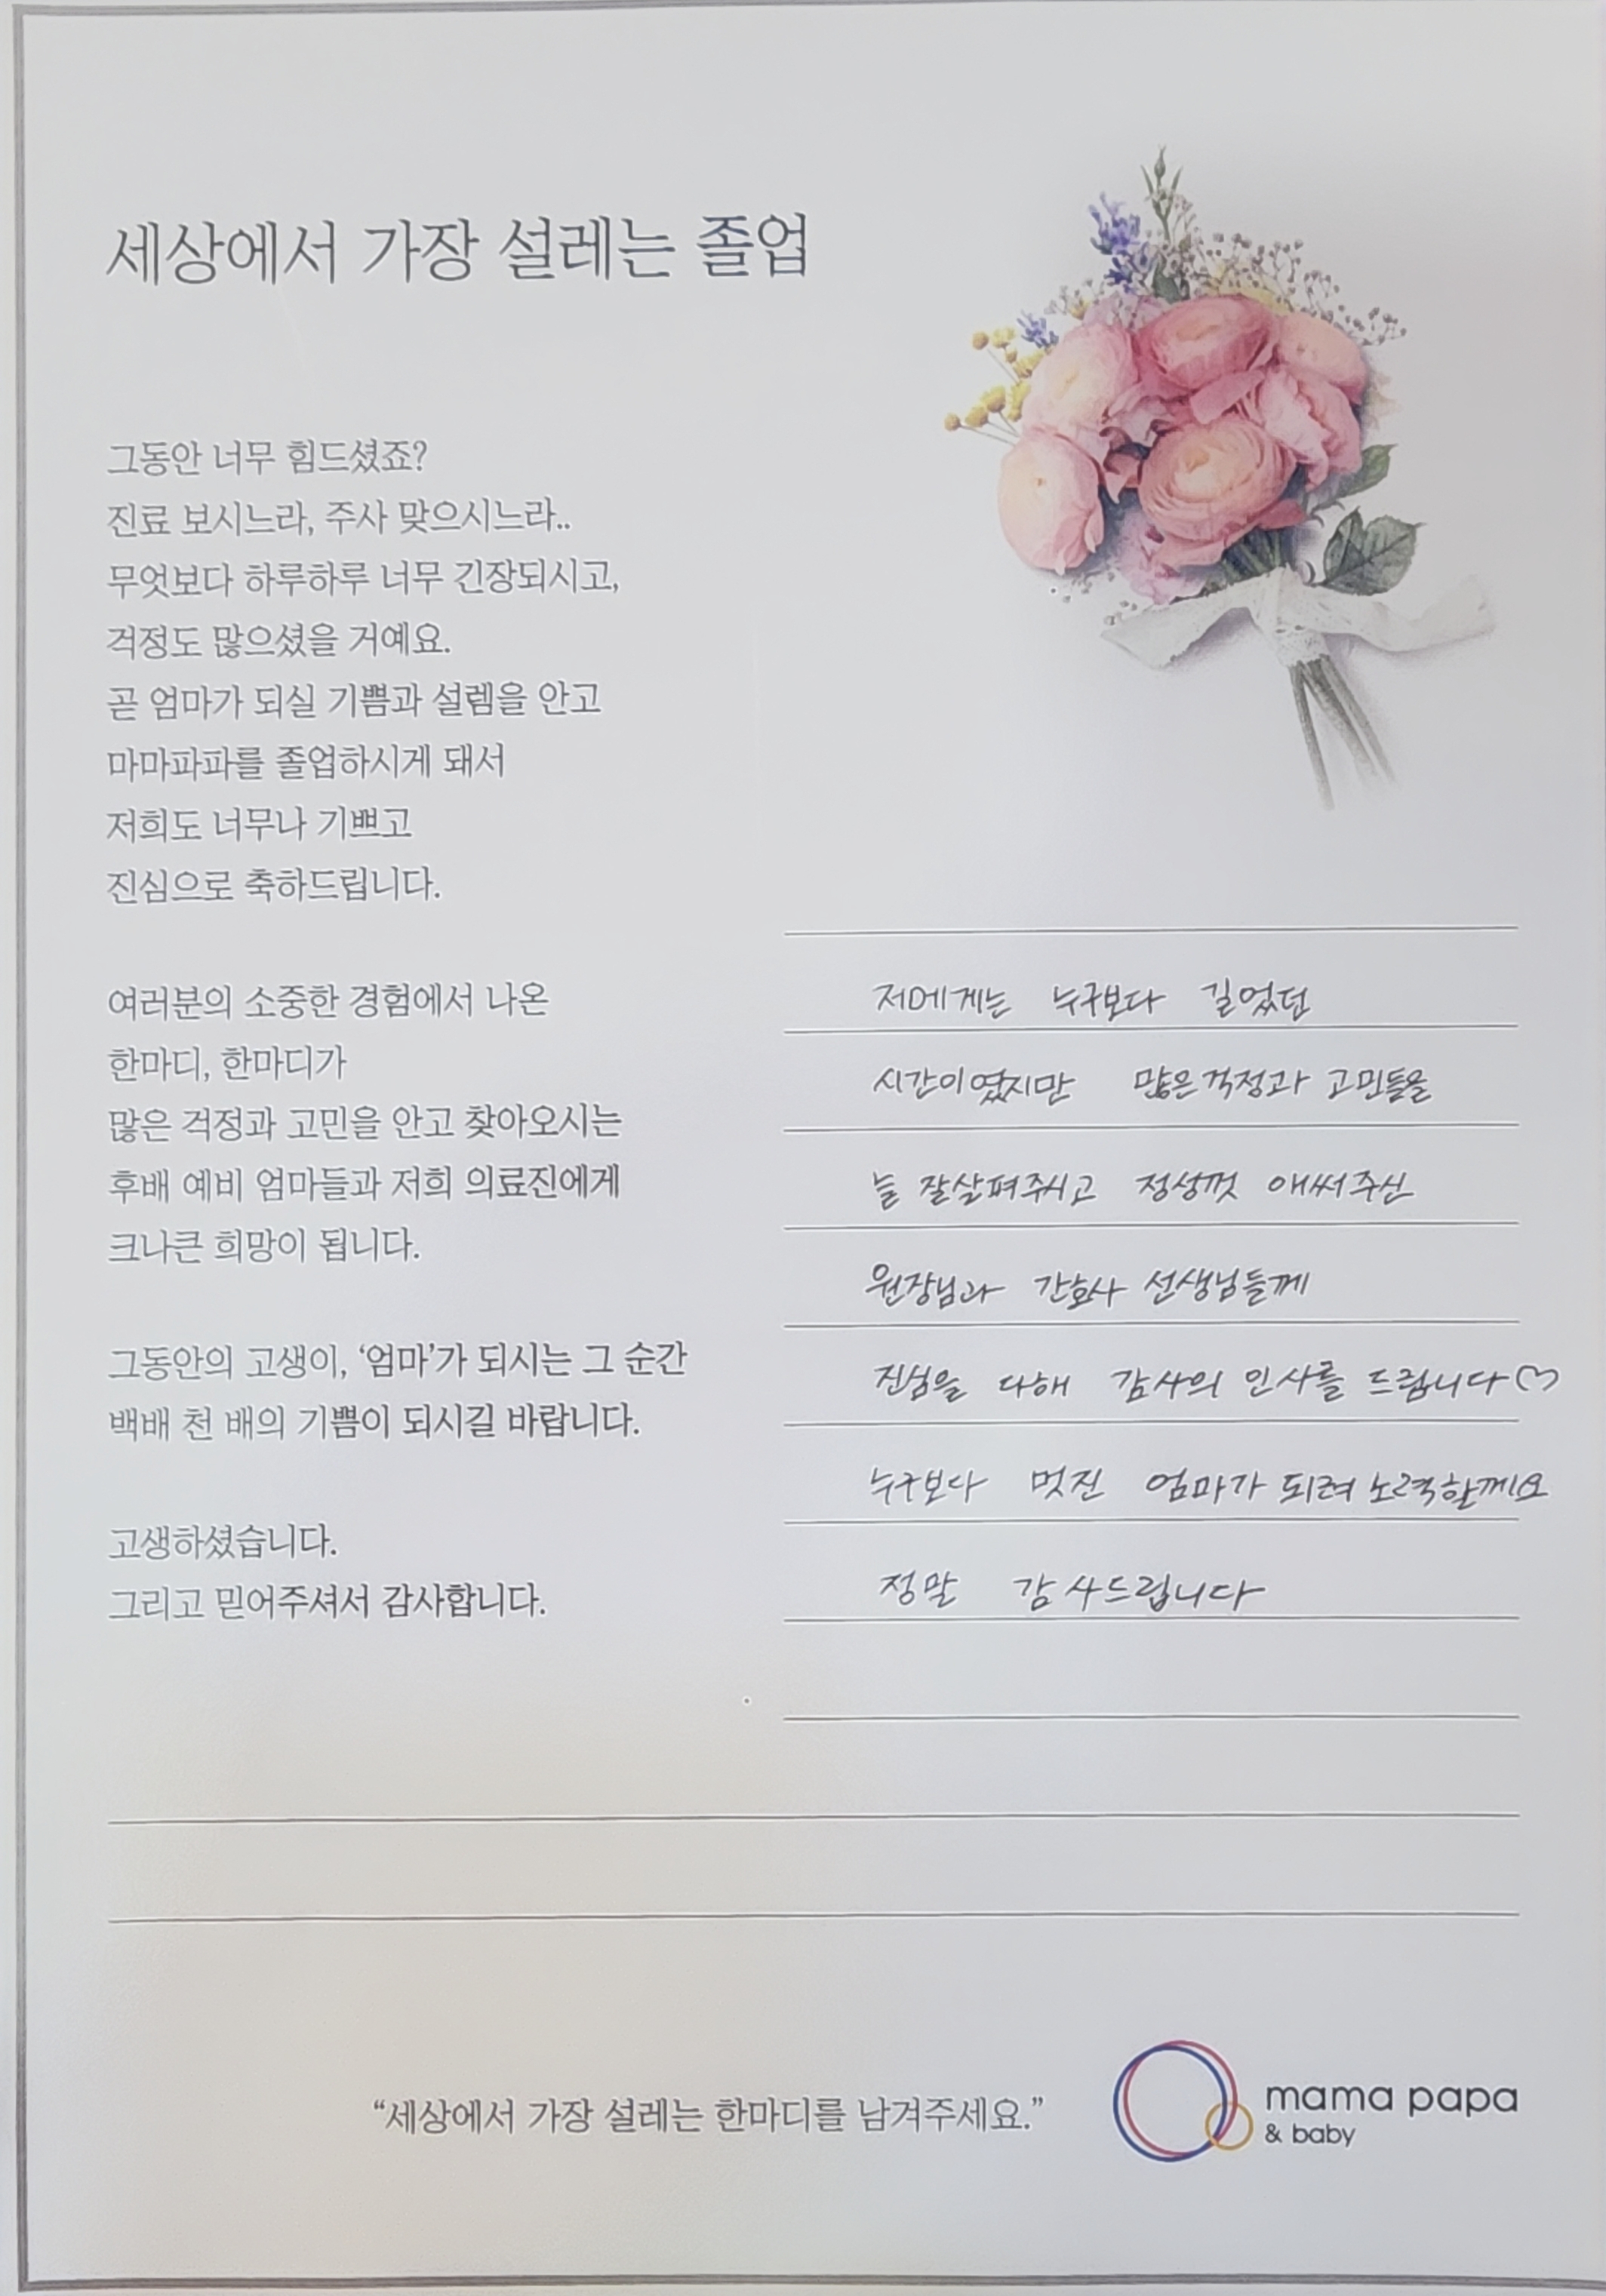 세상에서 가장 설레는 졸업
그동안 너무 힘드셨죠?
진료 보시느라, 주사 맞으시느라..
무엇보다 하루하루 너무 긴장되시고,
걱정도 많으셨을 거예요.
곧 엄마가 되실 기쁨과 설렘을 안고
마마파파를 졸업하시게 돼서
저희도 너무나 기쁘고
진심으로 축하드립니다.
여러분의 소중한 경험에서 나온
한마디, 한마디가
많은 걱정과 고민을 안고 찾아오시는
후배 예비 엄마들과 저희 의료진에게
크나큰 희망이 됩니다.
그동안의 고생이, ‘엄마’가 되시는 그 순간
백배 천 배의 기쁨이 되시길 바랍니다.
고생하셨습니다.
그리고 믿어주셔서 감사합니다.
저에게는 누구보다 길었던
시간이였지만 많은걱정과 고민들을
늘 잘살펴주시고 정성껏 애써주신
원장님과 간호사 선생님들께
진심을 다해 감사의 인사를 드립니다♡
누구보다 멋진 엄마가 되려 노력할께요
정말 감사드립니다
“세상에서 가장 설레는 한마디를 남겨주세요.”
mama papa
& baby